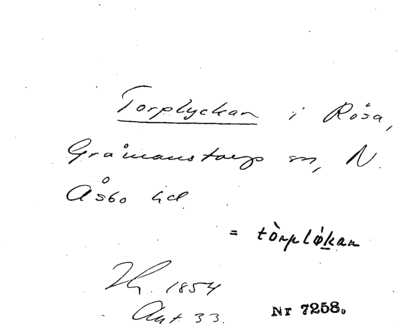 Torplyckan i Rösa,
Gråmanstorps sn, N.
Åsbo hd.
= tòrplø̀kan
1854
Ant 33.
Nr 7258.